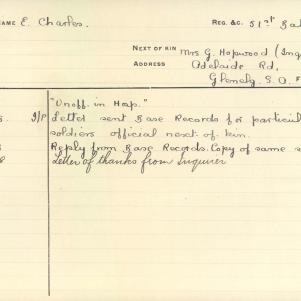 NAME E. Charles. REG. &C. 51st Bat
NEXT OF KIN Mrs G. Hopwood (Inq
ADDRESS Adelaide Rd,
Glenelg. S.A.
"Unoff. in Hosp."
I/P Letter sent Base Records for particul
soldiers official next of kin.
Reply from Base Records. Copy of same s
Letter of thanks from Inquirer